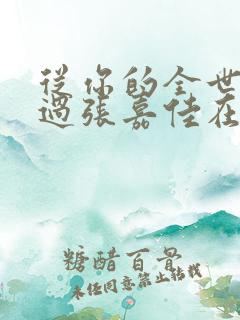 從你的全世
過張嘉佳在
糖醋百骨
未任同意禁止转载